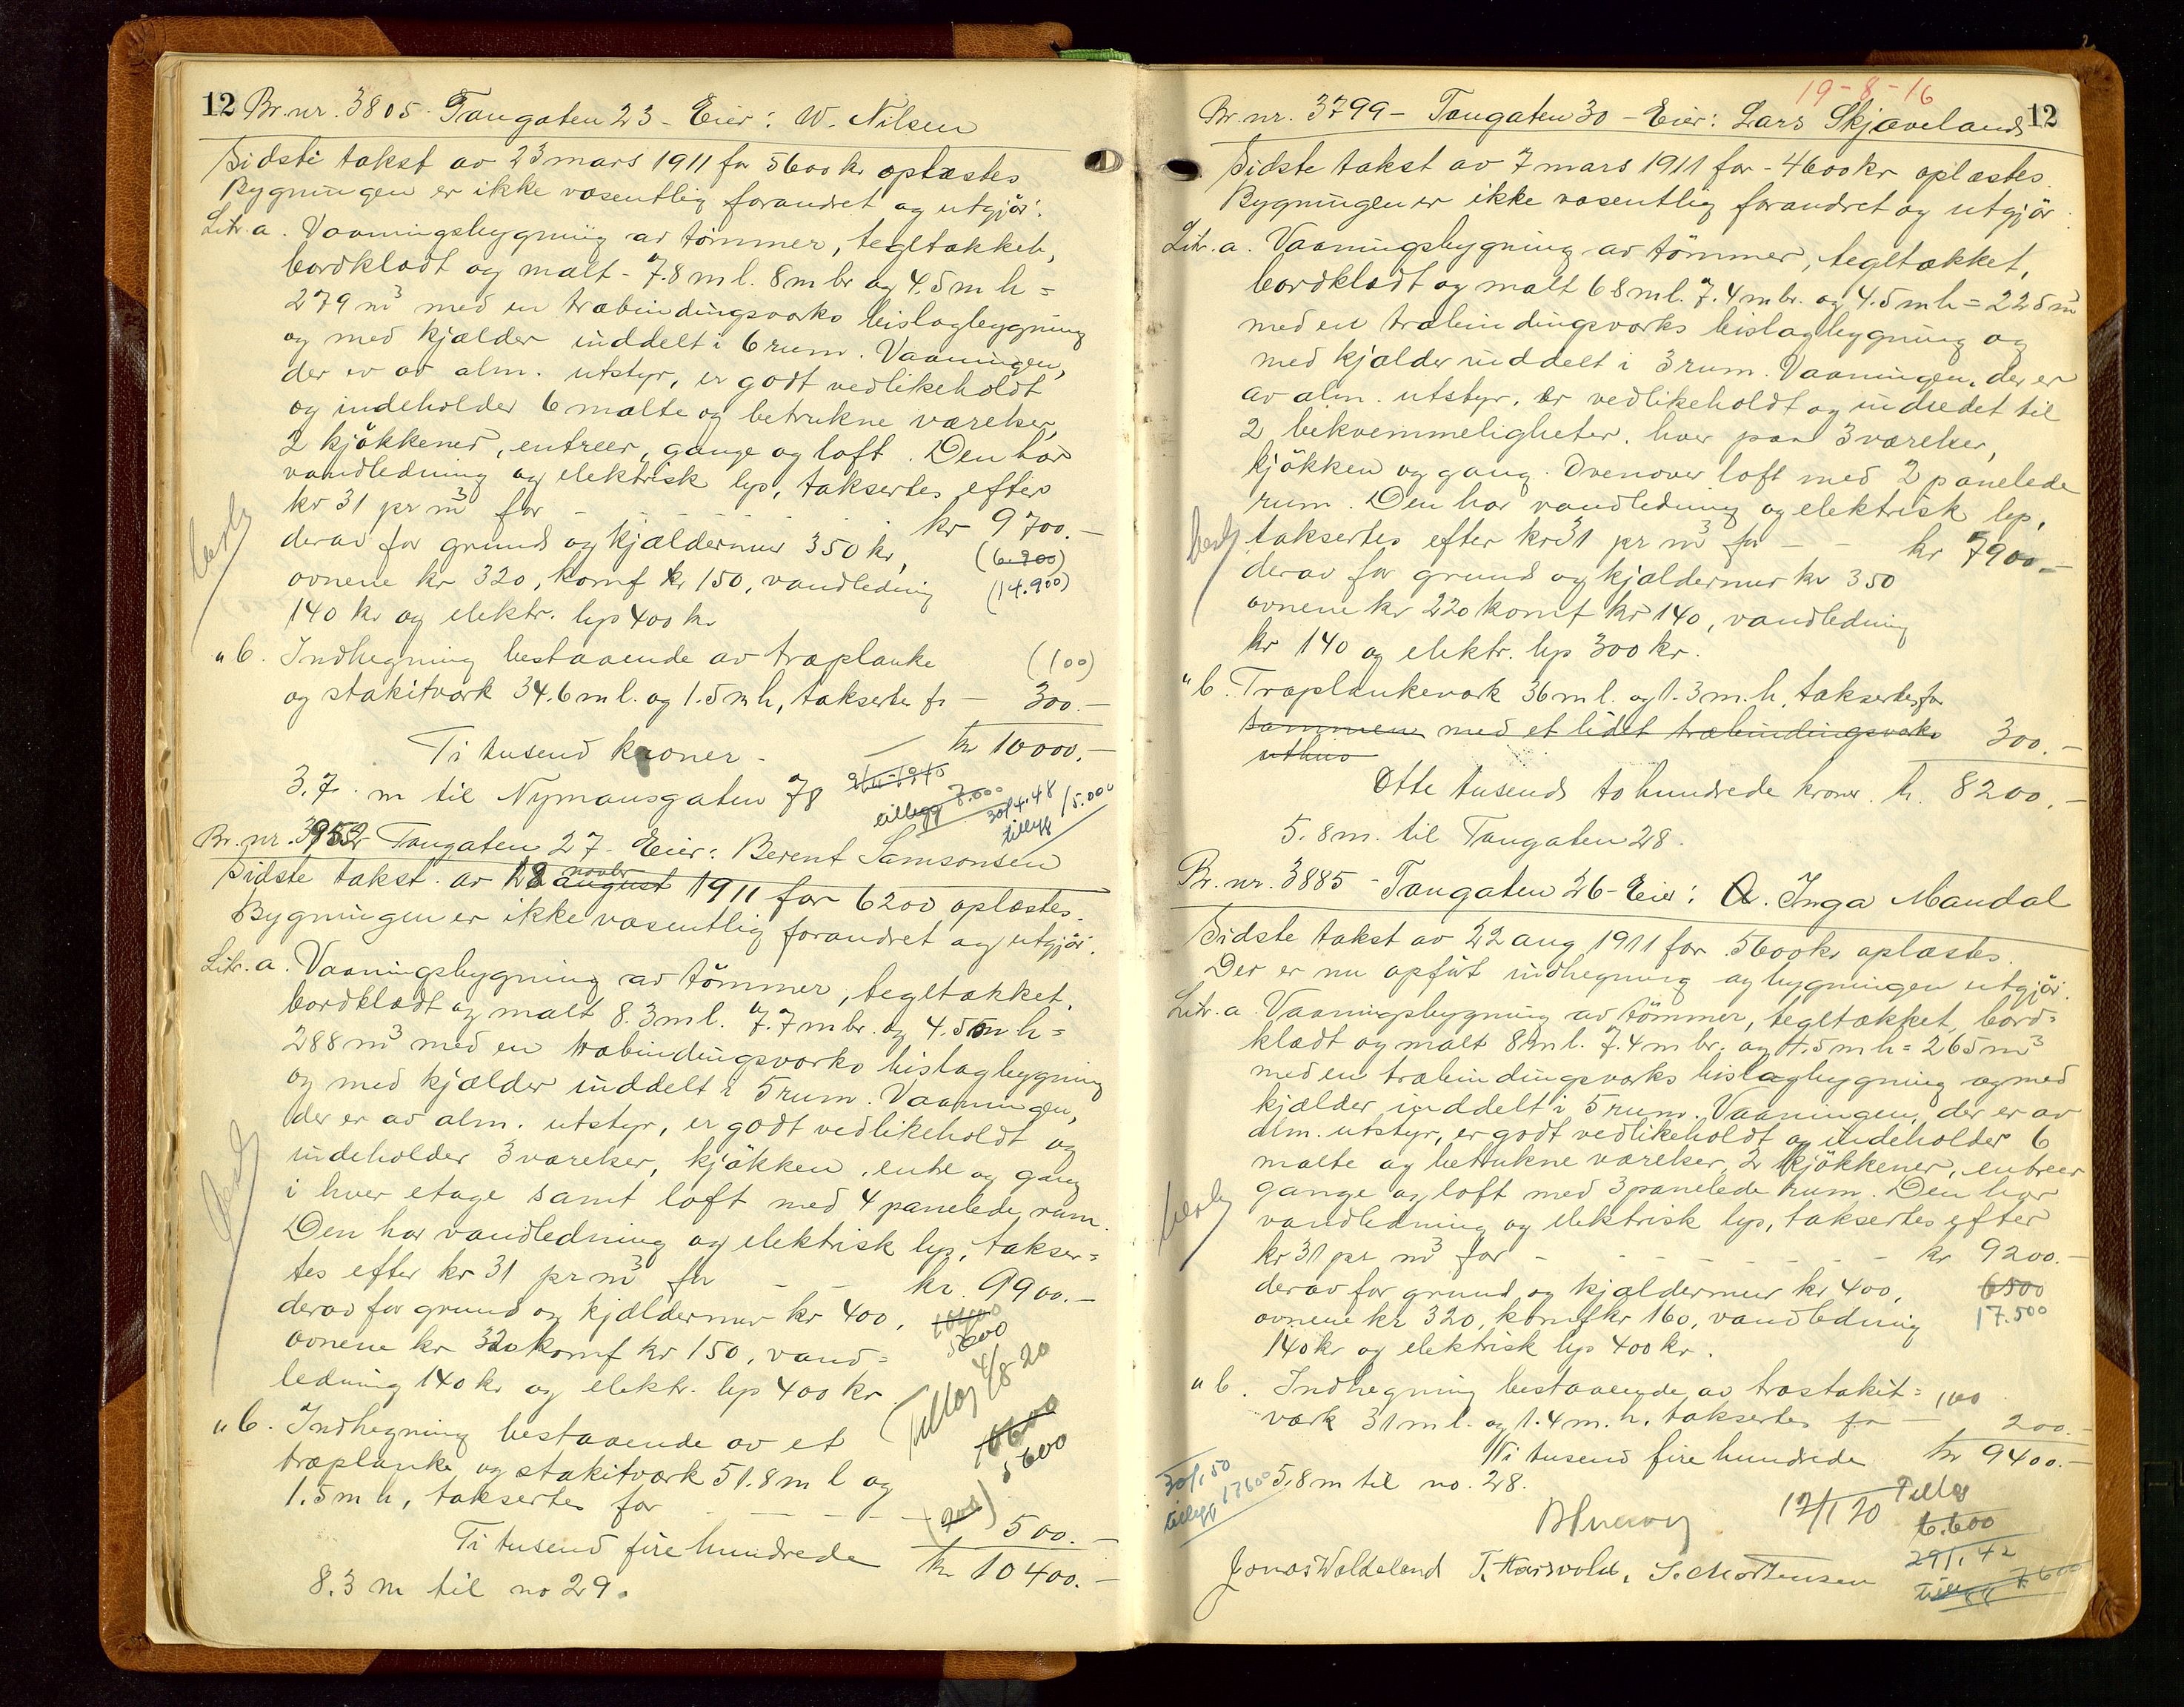 12 Br. nr. 3805 - Tangaten 23 - Eier: W. Nilsen
Sidste takst av 23 mars 1911 for 5600 kr oplæstes
Bygningen er ikke væsentlig forandret og utgjör:
Litr. a. Vaaningsbygning av tömmer, tegltækket,
bordklædt og malt - 7.8 m l. 8 m br og 4.5 m h =
279 m³ med en træbindingsværks bislagbygning
og med kjælder inddelt i 6 rum. Vaaningen,
der er av alm. utstyr, er godt vedlikeholdt
og indeholder 6 malte og betrukne værelser,
2 kjökkener, entreer, gange og loft. Den har
vandledning og elektrisk lys, taksertes efter
kr 31 pr m³ for - - - - - - kr 9700.-
derav for grund og kjældermur 350 kr, (6200)
ovnene kr 320, komf kr 150, vandledning (14.900)
140 kr og elektr. lys 400 kr
" b. Indhegning bestaaende av træplanke (100)
og stakitværk 34.6 m l. og 1.5 m h, taksertes fr - 300.-
Ti tusend kroner - kr 10000.-
3.7 m til Nymansgaten 78
tillegg 7.000
30/4.48 tillegg 15.000
Br. nr. 3952 Tangaten 27 - Eier: Berent Samsonsen
Sidste takst av 28 august novbr 1911 for 6200 oplæstes.
Bygningen er ikke væsentlig forandret og utgjör.
Litr. a. Vaaningsbygning av tömmer, tegltækket,
bordklædt og malt 8.3 m l. 7.7 m br. og 4.5 m h =
288 m³ med en træbindingsværks bislagbygning
og med kjælder inddelt i 5 rum. Vaaningen,
der er av alm. utstyr, er godt vedlikeholdt og
indeholder 3 værelser, kjökken, entre og gang
i hver etage samt loft med 4 panelede rum.
Den har vandledning og elektrisk lys, takser=
tes efter kr 31 pr m³ for - - kr. 9900.-
derav for grund og kjældermur kr 400,
ovnene kr 320 komf kr 150, vand= 5600
ledning 140 kr og elektr. lys 400 kr. Tillæg 4/8-20
" b. Indhegning bestaaende av et 6600
træplanke og stakitværk 51.8 m l og 5600
1.5 m h, taksertes for - - - - (200) 500.-
Ti tusend fire hundrede kr 10400.-
8.3 m til no 29.
19-8-16
Br. nr. 3799 - Tangaten 30 - Eier: Lars Skjæveland 12
Sidste takst av 7 mars 1911 for - 4600 kr oplæstes.
Bygningen er ikke væsentlig forandret og utgjör.
Litr. a. Vaaningsbygning av tömmer, tegltækket,
bordklædt og malt 6 8 m l. 7.4 m br. og 4.5 m h = 225 m³
med en træbindingsværks bislagbygning og
med kjælder inddelt i 3 rum. Vaaningen, der er
av alm. utstyr, er vedlikeholdt og indredet til
2 bekvemmeligheter, hver paa 3 værelser,
kjökken og gang. Ovenover loft med 2 panelede
rum. Den har vandledning og elektrisk lys,
taksertes efter kr 31 pr m³ for - - kr 7900.-
derav for grund og kjældermur kr 350
ovnene kr 220 komf kr 140, vandledning
kr 140 og elektr. lys 300 kr.
" b. Træplankeværk 36 m l. og 1.3 m. h, taksertes for
sammen med et lidet træbindingsværks 300.-
uthus
Otte tusend to hundrede kroner. kr. 8200.-
5.8 m. til Tangaten 28.
Br. nr. 3885 - Tangaten 26 - Eier: A. Inga Mandal
Sidste takst av 22 aug 1911 for 5600 kr oplæstes.
Der er nu opfört indhegning og bygningen utgjör.
Litr. a. Vaaningsbygning av tömmer, tegltækket, bord=
klædt og malt 8 m l. 7.4 m br. og 4.5 m h = 265 m³
med en træbindingsværks bislagbygning og med
kjælder inddelt i 5 rum. Vaaningen, der er av
alm. utstyr, er godt vedlikeholdt og indeholder 6
malte og betrukne værelser, 2 kjökkener, entreer
gange og loft med 3 panelede rum. Den har
vandledning og elektrisk lys, taksertes efter
kr 31 pr m³ for - - - - - - kr 9200.-
derav for grund og kjældermur kr 400, 6500
ovnene kr 320, komf kr 160, vandledning 17.500
140 kr og elektrisk lys 400 kr.
" b. Indhegning bestaaende av træstakit= 100
værk 31 m l. og 1.4 m. h, taksertes for - 200.-
Ni tusend fire hundrede kr 9400.-
30/1.50 tillegg 17600
5,8 m til no. 28.
12/1 20 Tillæg 6.600
29/1.42 tillegg 7600
Jonas Waldeland T. Harsvold, S. Mortensen